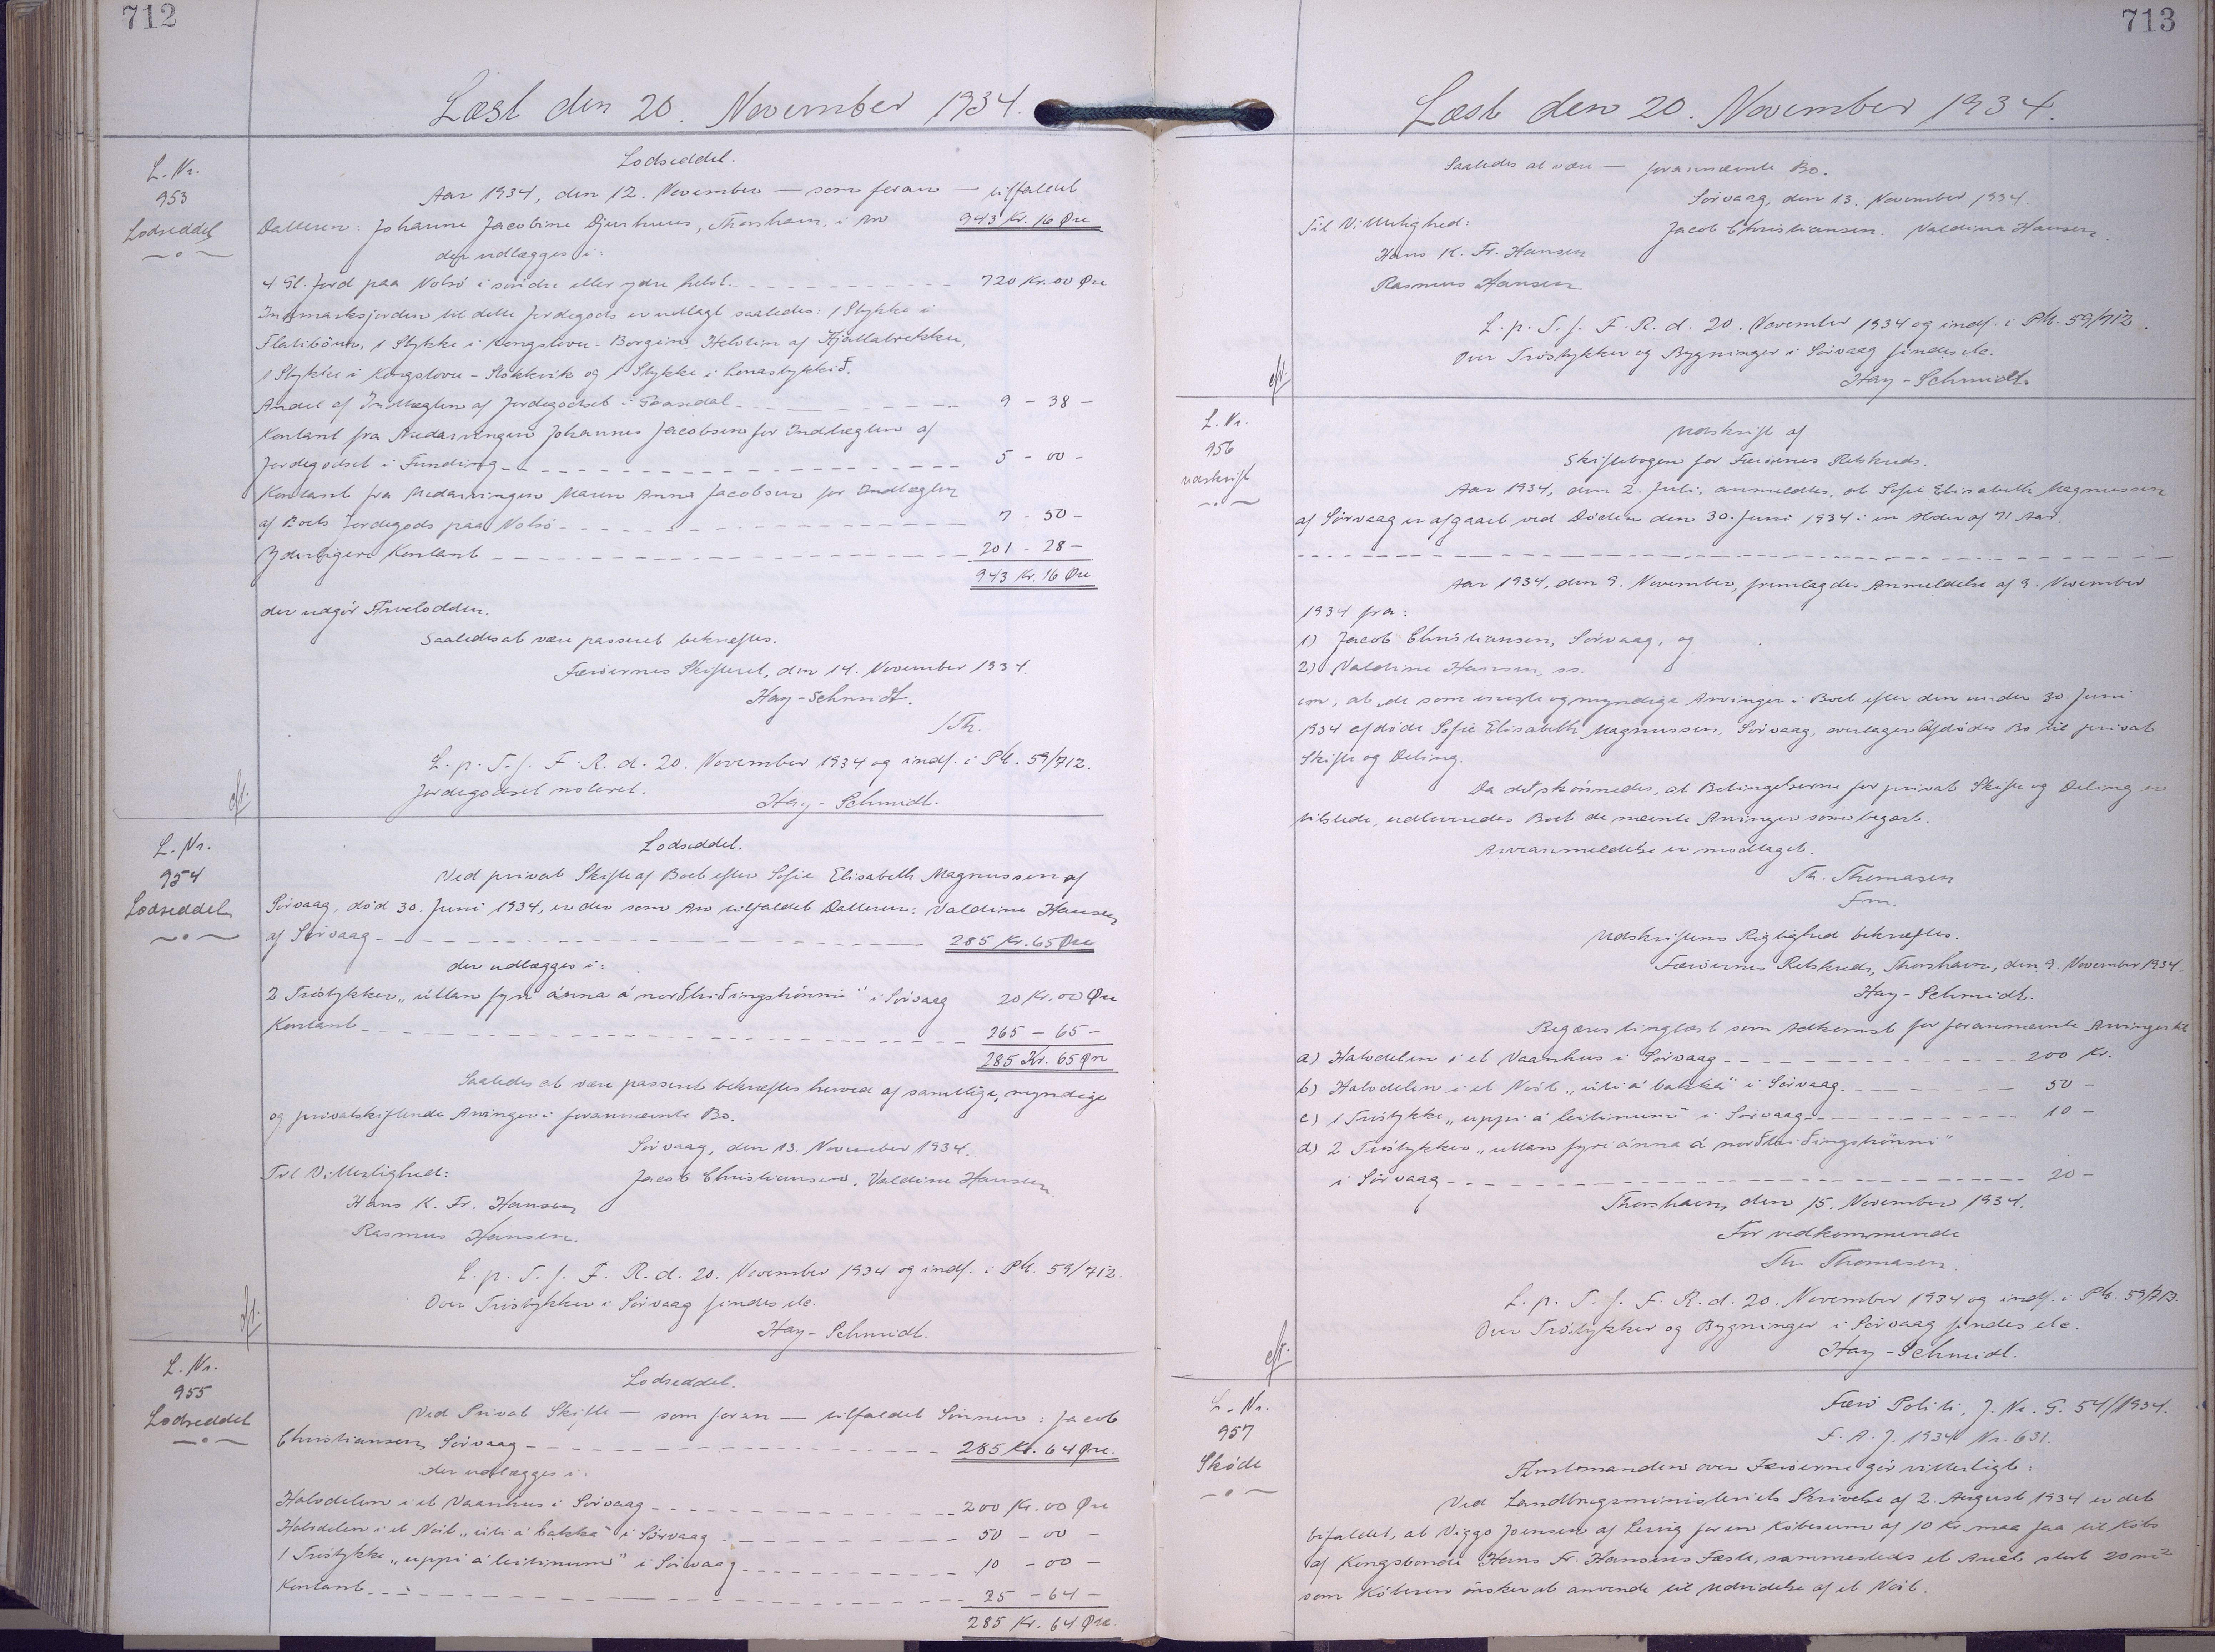 712
Læst den 20. November 1934.
L. Nr.
953
Lodseddel
Lodseddel.
Aar 1934, den 12. November — som foran — tilfaldet
Datteren: Johanne Jacobine Djurhuus, Thorshavn, i Arv 943 Kr. 16 Øre
der udlægges i:
4 Gl. Jord paa Nolsö i søndre eller ydre helvt 720 Kr. 00 Øre
Inmarksjorden til dette Jordegods er udlagt saaledes: 1 Stykke i
Flatibönur, 1 Stykke i Kongstovu-Borgina, Helvtin af Hjallabrekku,
1 Stykke i Kongstovu-Stokkvik og 1 Stykke i
Andel af Indtægten af Jordegodset i Saxedal 9 - 38 -
Kontant fra Medarvingen Johannes Jacobsen for Indtægten af
Jordegodset i Funding 5 - 00 -
Kontant fra Medarvingen Maren Anna Jacobsen for Indtægten
af Boets Jordegods paa Nolsö 7 - 50 -
Yderligere Kontant 201 - 28 -
943 Kr. 16 Øre
der udgör Arvelodden.
Saaledes at være passeret bekræftes.
Færöernes Skifteret, den 14. November 1934.
Hay-Schmidt.
/Th.
L. p. T. f. F. R. d. 20. November 1934 og indf. i Pb. 59/712.
Jordegodset noteret.
Hay-Schmidt.
L. Nr.
954
Lodseddel
Lodseddel.
Ved privat Skifte af Boet efter Sofie Elisabeth Magnussen af
Sörvaag, död 30. Juni 1934, er der som Arv tilfaldet Datteren: Valdine Hansen
af Sörvaag 285 Kr. 65 Øre
der udlægges i:
2 Tröstykker „uttan fyri ánna á norðhiðingshönni" i Sörvaag 20 Kr. 00 Øre
Kontant 265 - 65 -
285 Kr. 65 Øre
Saaledes at være passeret bekræftes herved af samtlige, myndige
og privatskiftende Arvinger i forannævnte Bo.
Sörvaag, den 13. November 1934.
Til Vitterlighed:
Jacob Christiansen, Valdine Hansen.
Hans K. Fr. Hansen
Rasmus Hansen.
L. p. T. f. F. R. d. 20. November 1934 og indf. i Pb. 59/712.
Over Tröstykker i Sörvaag findes ele.
Hay-Schmidt.
L. Nr.
955
Lodseddel
Lodseddel.
Ved Privat Skifte — som foran — tilfaldet Sönnen: Jacob
Christiansen, Sörvaag 285 Kr. 64 Øre.
der udlægges i:
Halvdelen i et Vaanhus i Sörvaag 200 Kr. 00 Øre
Halvdelen i et Nöst „úti á bakka" i Sörvaag 50 - 00 -
1 Tröstykke „uppi á leitinum" i Sörvaag 10 - 00 -
Kontant 25 - 64 -
285 Kr. 64 Øre.
713
Læst den 20. November 1934.
Saaledes at være — forannævnte Bo.
Sörvaag, den 13. November 1934.
Til Vitterlighed:
Jacob Christiansen. Valdina Hansen.
Hans K. Fr. Hansen
Rasmus Hansen
L. p. T. f. F. R. d. 20. November 1934 og indf. i Pb. 59/712.
Over Tröstykker og Bygninger i Sörvaag findes ele.
Hay-Schmidt.
L. Nr.
956
Udskrift
Udskrift af
Skiftebogen for Færöernes Retskreds.
Aar 1934, den 2. Juli, anmeldtes, at Sofie Elisabeth Magnussen
af Sörvaag er afgaaet ved Döden den 30. Juni 1934 i en Alder af 71 Aar.
Aar 1934, den 9. November, fremlagdes Anmeldelse af 9. November
1934 fra:
1) Jacob Christiansen, Sörvaag, og
2) Valdine Hansen, ss.
om, at de som eneste og myndige Arvinger i Boet efter den under 30. Juni
1934 afdöde Sofie Elisabeth Magnussen, Sörvaag, overtager Afdödes Bo til privat
Skifte og Deling.
Da det skönnedes, at Betingelserne for privat Skifte og Deling er
tilstede, udleveredes Boet de nævnte Arvinger som begært.
Arveanmeldelse er modtaget.
Th. Thomasen
Fm.
Udskriftens Rigtighed bekræftes.
Færöernes Retskreds, Thorshavn, den 9. November 1934.
Hay-Schmidt.
Begæres tinglæst som Adkomst for forannævnte Arvinger til
a) Halvdelen i et Vaanhus i Sörvaag 200 Kr.
b) Halvdelen i et Nöst „úti á bakka" i Sörvaag 50 -
c) 1 Tröstykke „uppi á leitinum" i Sörvaag 10 -
d) 2 Tröstykker „uttan fyri ánna á norðhiðingshönni"
i Sörvaag 20 -
Thorshavn, den 15. November 1934.
For vedkommende
Th. Thomasen.
L. p. T. f. F. R. d. 20. November 1934 og indf. i Pb. 59/713.
Over Tröstykker og Bygninger i Sörvaag findes ele.
Hay-Schmidt.
L. Nr.
957
Sköde
Færö Politi, J. Nr. G. 54/1934.
F. A. J. 1934 Nr. 631.
Amtmanden over Færöerne gör vitterligt:
Ved Landbrugsministeriets Skrivelse af 2. August 1934 er det
bifaldet, at Viggo Joensen af Lervig for en Köbesum af 10 Kr. maa faa til Köbs
af Kongsbonde Hans Fr. Hansens Fæste, sammesteds et Areal stort 20 m²
som Köberen önsker at anvende til Udvidelse af et Nöst.